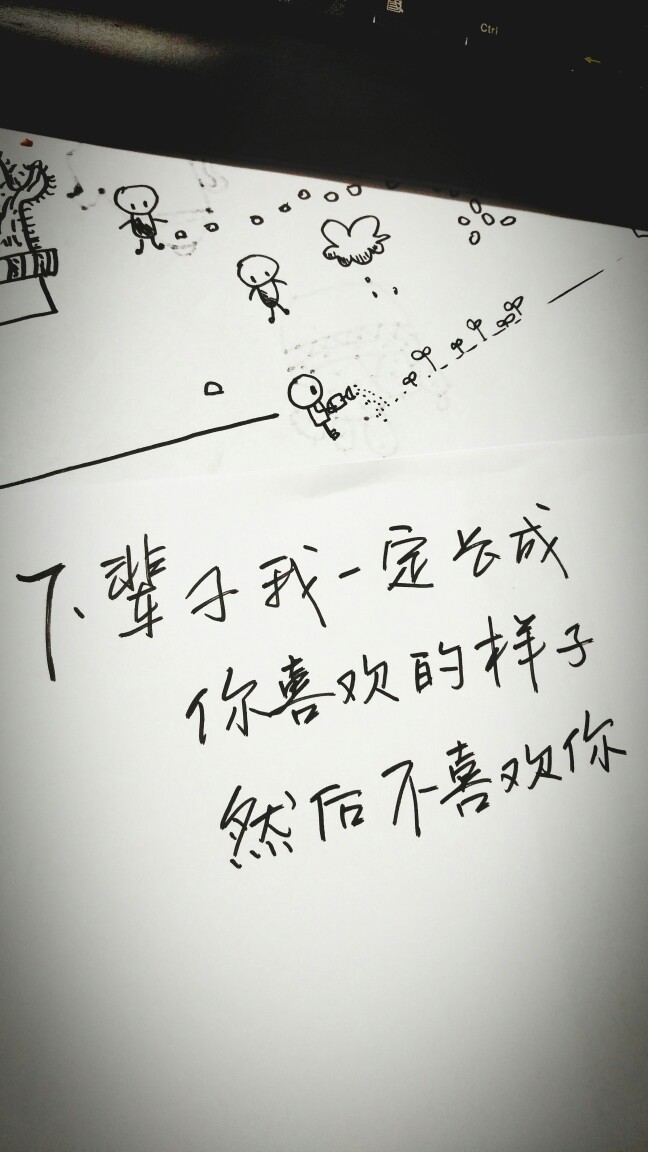 Ctrl
下辈子我一定长成
你喜欢的样子
然后不喜欢你